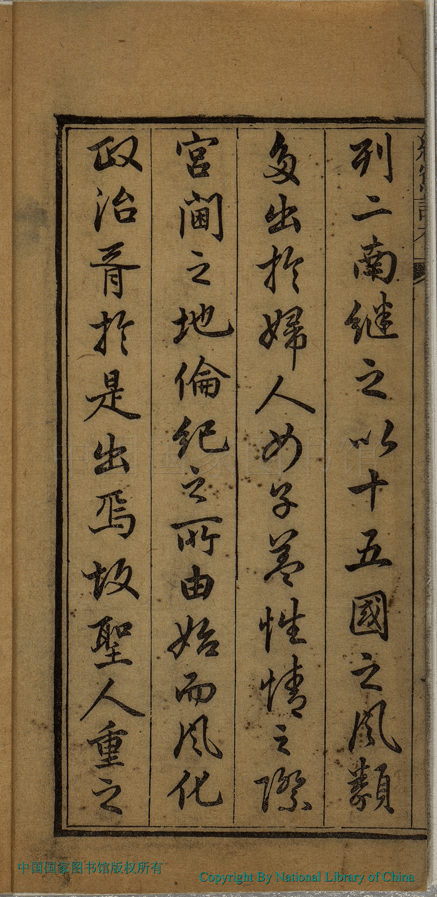 列二南繼之以十五國之風類
多出於婦人女子蓋性情之際
宮閫之地倫紀之所由始而風化
政治胥於是出焉故聖人重之
中国国家图书馆版权所有
Copyright By National Library of China